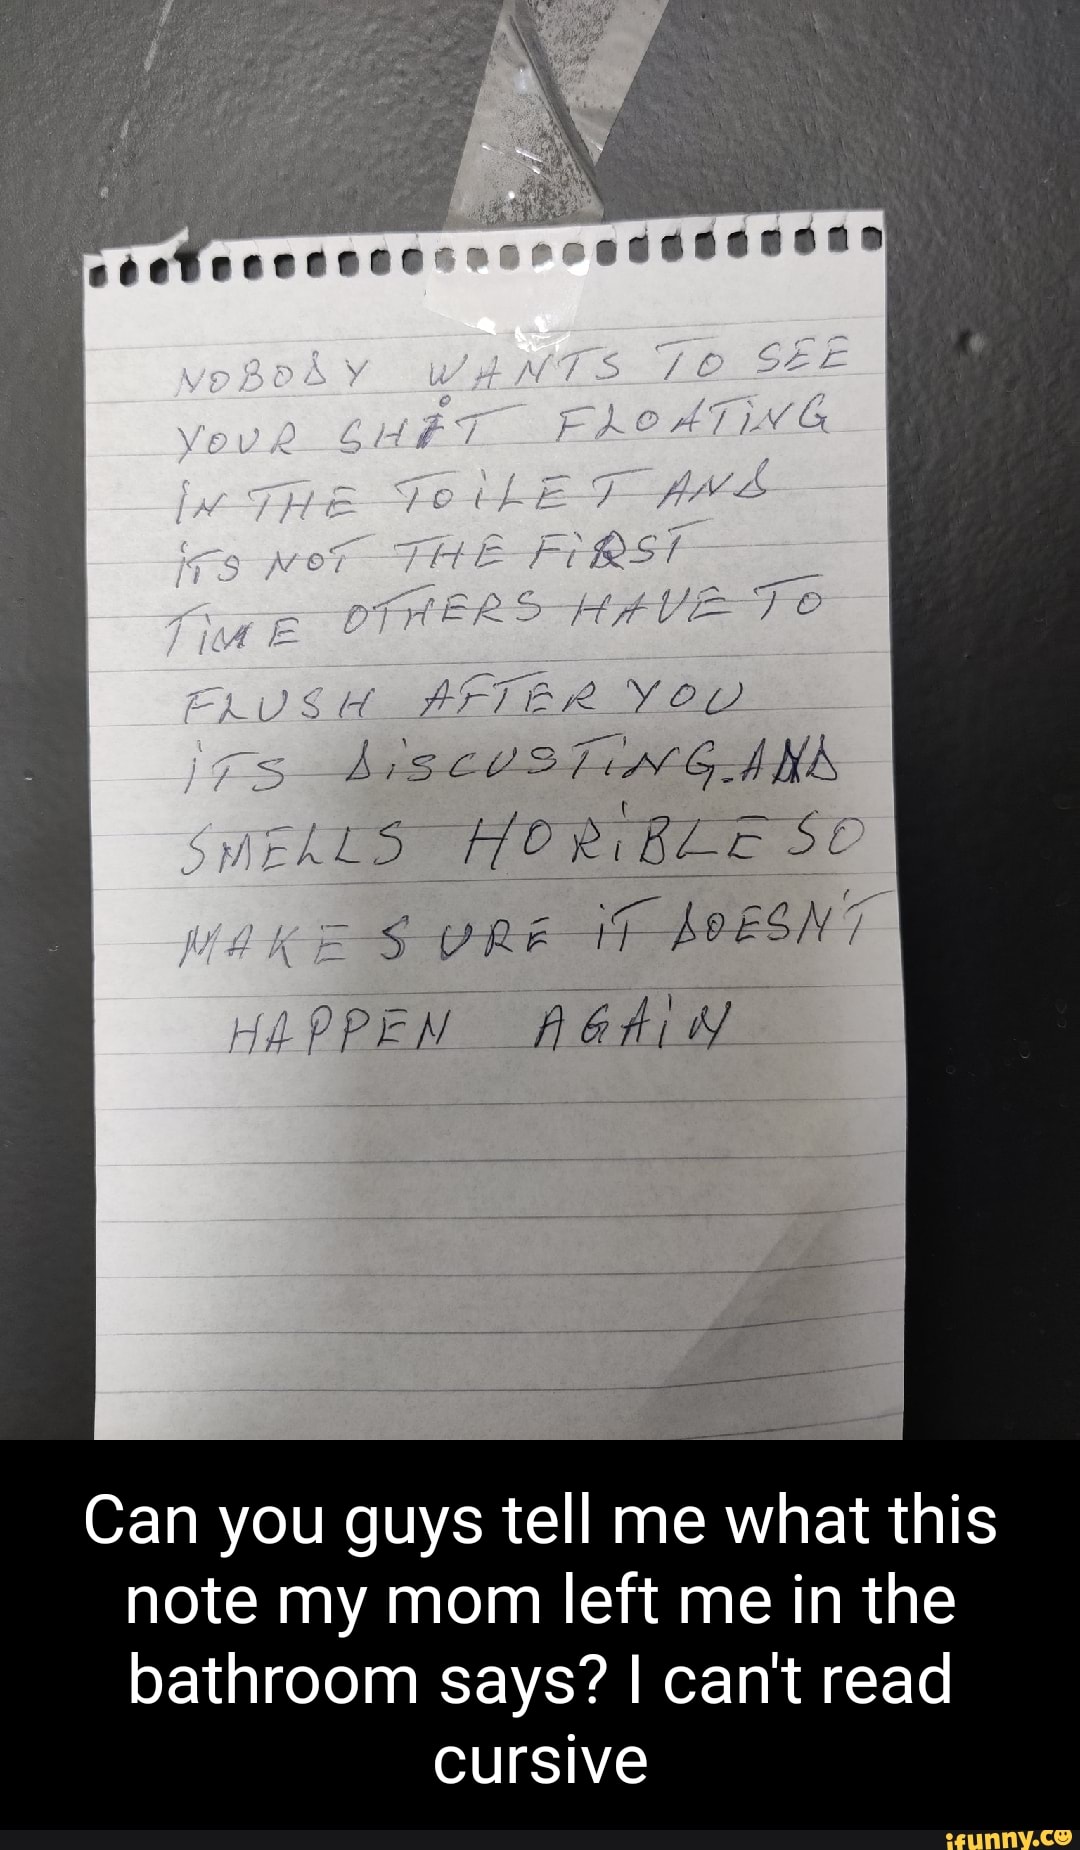 NOBODY WANTS TO SEE
YOUR SHIT FLOATING
iN THE TOiLET AND
iTS NOT THE FiRST
TiME OTHERS HAVE TO
FLUSH AFTER YOU
iTS DiSCUSTiNG.AND
SMELLS HORiBLE SO
MAKE SURE iT DOESN'T
HAPPEN AGAiN
Can you guys tell me what this
note my mom left me in the
bathroom says? I can't read
cursive
ifunny.co